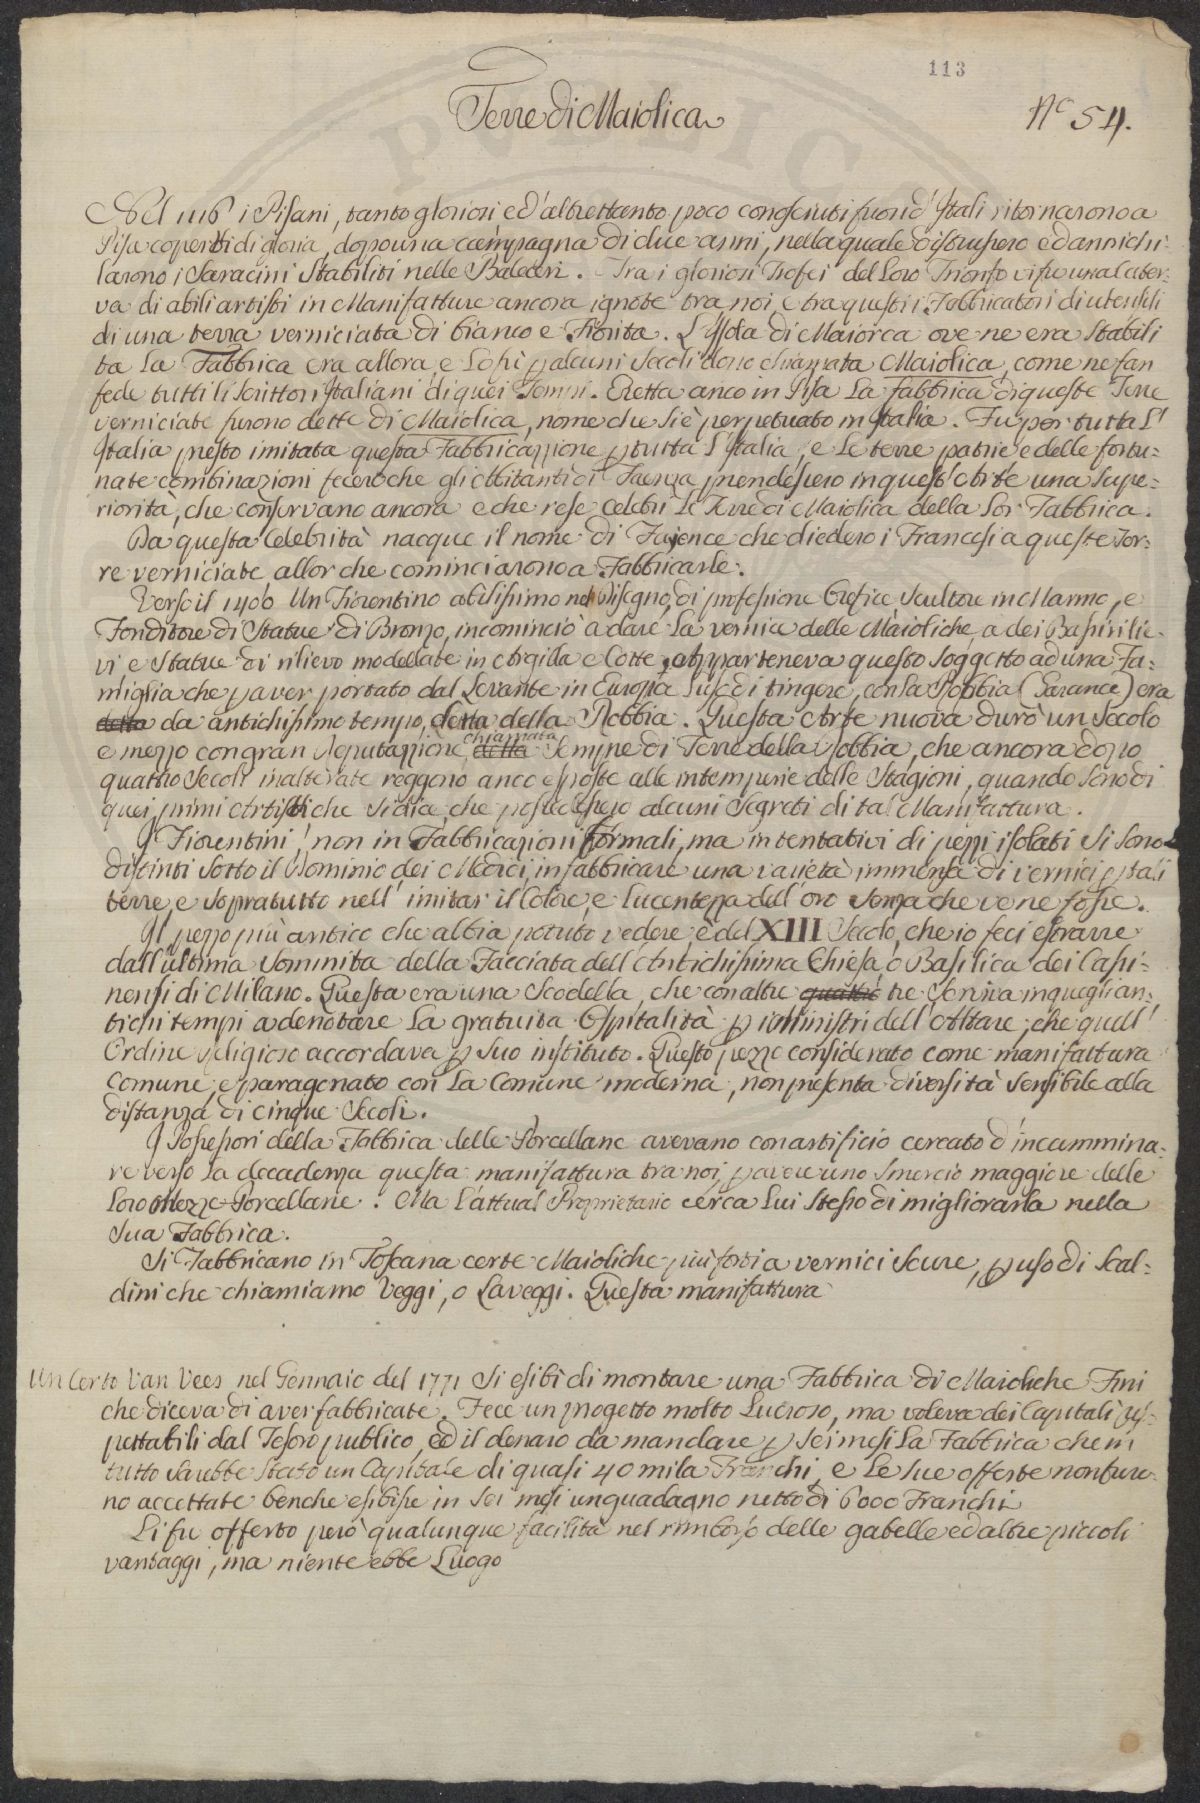 113
Terre di Maiolica
Nº 54.
Nel 1116 i Pisani, tanto gloriosi ed' altrettanto poco conosciuti fuori d' Itali ritornarono a
Pisa coperti di gloria, dopo una campagna di due anni, nella quale distrussero ed annichi=
larono i Saracini stabiliti nelle Baleari. Tra i gloriosi Trofei del Loro Trionfo vi fu una Cater=
va di abili artisti in Manifatture ancora ignote tra noi e tra questi i Fabbricatori di utensili
di una terra verniciata di bianco e Fiorita. L'Isola di Maiorca ove ne era stabili
ta La Fabbrica era allora, e Lo fù p alcuni secoli dopo chiamata Maiolica, come ne fan
fede tutti li scrittori Italiani di quei Tempi. Eretta anco in Pisa La fabbrica di queste Terre
verniciate furono dette di Maiolica, nome che si è perpetuato in Italia. Fu per tutta L'
Italia presto imitata questa Fabbricazzione p tutta L'Italia, e Le terre patrie e delle fortu=
nate combinazioni fecero che gli Abitanti di Faenza prendessero in quest' Arte una supe=
riorità, che conservano ancora e che rese celebri Le Terre di Maiolica della Lor Fabbrica.
Da questa Celebrità nacque il nome di Fajence che diedero i Francesi a queste Ter=
re verniciate allor che cominciarono a Fabbricarle.
Verso il 1400 Un Fiorentino abilissimo nel Disegno, di professione Orefice Scultore in Marmo, e
Fonditore di Statue di Bronzo, incominciò a dare La vernice delle Maioliche, a dei Bassirilie=
vi e Statue di rilievo modellate in Argilla e Cotte, apparteneva questo soggetto ad una Fa=
miglia che p aver portato dal Levante in Europa L'uso di tingere, con la Robbia (Garance) era
detta da antichissimo tempo, detta della Robbia. Questa Arte nuova durò un secolo
e mezzo con gran Reputazzione, detta chiamata sempre di Terre della Robbia, che ancora dopo
quattro secoli inalterate reggono anco esposte alle intemperie delle Stagioni, quando sono di
quei primi Artisti che si dice, che possedessero alcuni segreti di tal Manifattura.
I Fiorentini, non in Fabbricazioni formali, ma in tentativi di pezzi isolati si sono
distinti sotto il Dominio dei Medici, in fabbricare una varietà immensa di vernici p tali
terre, e sopratutto nell' imitar il Colore, e Lucentezza dell' oro senza che ve ne fosse.
Il pezzo più antico che abbia potuto vedere, è del XIII Secolo, che io feci estrarre
dall'ultima Sommita della Facciata dell'Antichissima Chiesa, o Basilica dei Cassi=
nensi di Milano. Questa era una Scodella, che con altre quattro tre serviva in quegli an=
tichi tempi a denotare La gratuita Ospitalità p i Ministri dell'Altare, che quell'
Ordine Religioso accordava p suo instituto. Questo pezzo considerato come manifattura
Comune, e paragonato con La Comune moderna, non presenta diversità sensibile alla
distanza di cinque Secoli.
I Possessori della Fabbrica delle Porcellane avevano con artificio cercato d' incammina=
re verso La decadenza questa manifattura tra noi, p avere uno smercio maggiore delle
Loro Mezze Porcellane. Ma L'attual Proprietario cerca Lui Stesso di migliorarla nella
Sua Fabbrica.
Si Fabbricano in Toscana certe Maioliche più forti a vernici scure, p uso di Scal=
dini che chiamiamo Veggi, o Laveggi. Questa manifattura
Un Certo Van Vees nel Gennaio del 1771 Si esibì di montare una Fabbrica di Maioliche Fini
che diceva di aver fabbricate. Fece un progetto molto Lucroso, ma voleva dei Capitali ris=
pettabili dal Tesoro publico, ed il denaro da mandare p sei mesi La Fabbrica che in
tutto sarebbe stato un Capitale di quasi 40 mila Franchi, e Le sue offerte non furo=
no accettate benche esibisse in sei mesi un guadagno netto di 6000 Franchi
Li fu offerto però qualunque facilità nel rimborso delle gabelle ed altre piccoli
vantaggi, ma niente ebbe Luogo